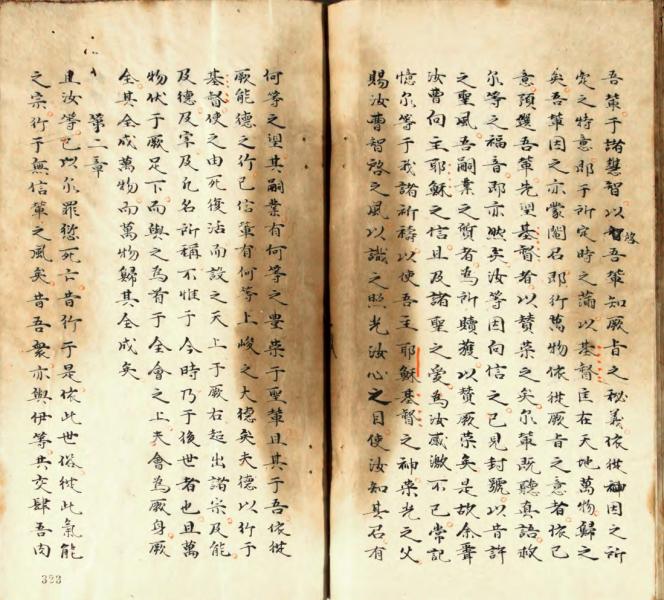 吾輩于諸慧智以智吾輩知厥旨之秘義依從神因之所
定之特意即于所定時之滿以基督匡在天地萬物歸之
矣吾輩因之亦蒙鬮名即行萬物依從厥旨之意者依已
意預選吾輩先望基督者以贊榮之矣尔輩既聽真語救
尔等之福音即亦然矣汝等因向信之已見封號以昔許
之聖風吾嗣業之質者為所贖獲以贊厥榮矣是故余聞
汝曹向主耶穌之信且及諸聖之愛為汝感激不已常記
憶尔等于我諸祈禱以使吾主耶穌基督之神榮光之父
賜汝曹智啓之風以識之照光汝心之目使汝知其召有
何等之望其嗣業有何等之豐榮于聖輩且其于吾依從
厥能德之行已信輩有何等上峻之大德矣夫德以行于
基督使之由死復活而設之天上于厥右超出諸宗及能
及德及宰及凡名所稱不惟于今時乃于後世者也且萬
物伏于厥足下而與之為首于全會之上夫會為厥身厥
全其全成萬物而萬物歸其全成矣
第二章
且汝等已以尔罪愆死亡昔行于是依此世俗從此氣能
之宗行于無信輩之風矣昔吾衆亦與伊等共交肆吾肉
323